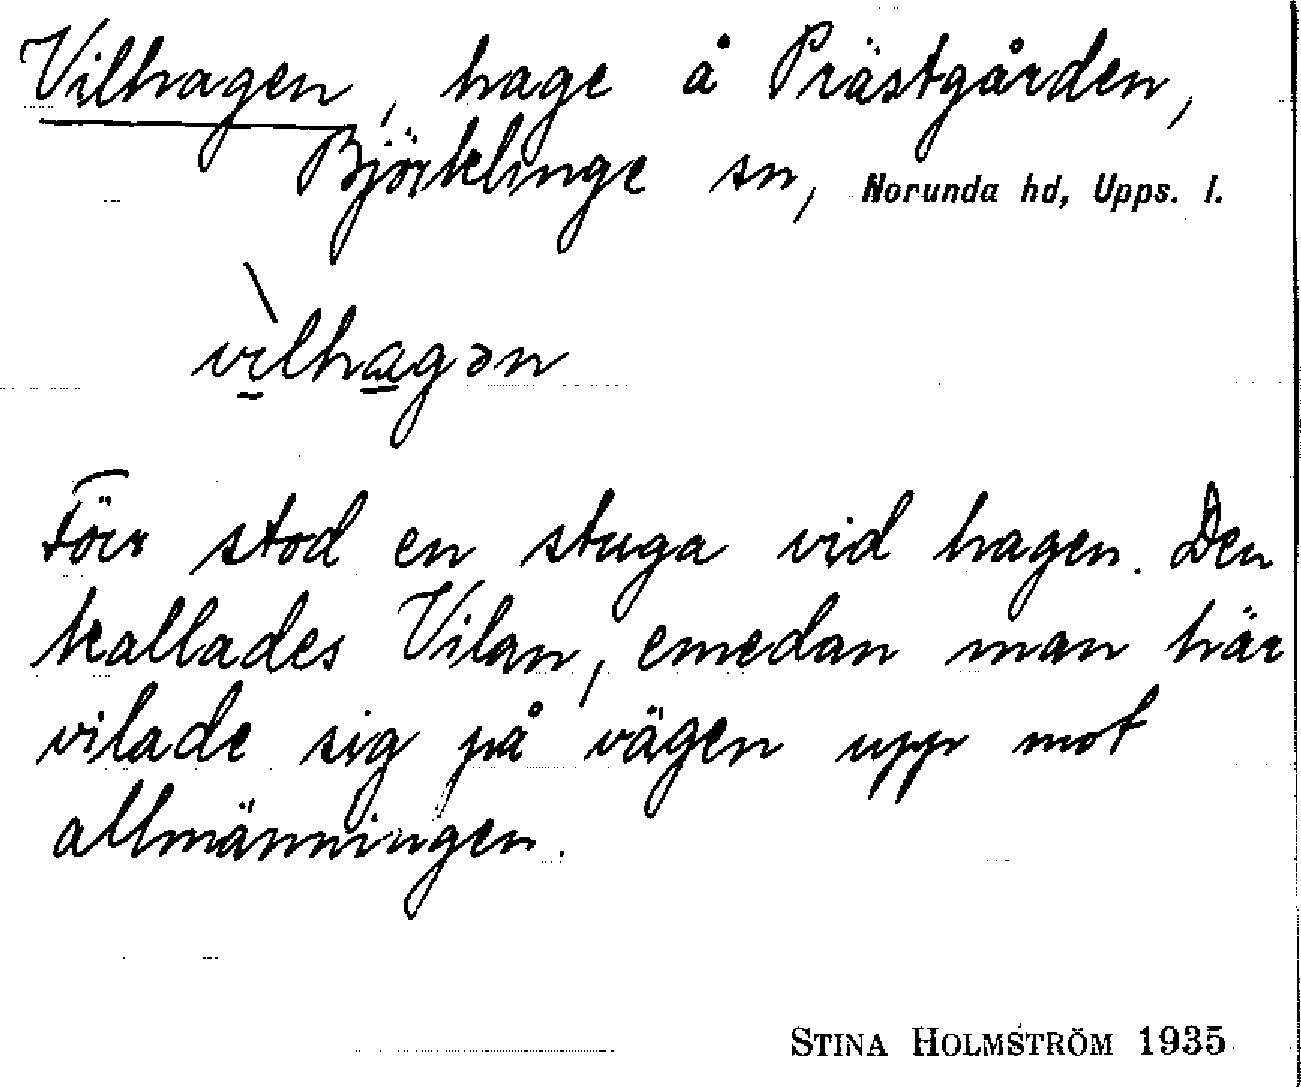 Vilhagen, hage å Prästgården,
Björklinge sn, Norunda hd, Upps. l.
vìlhagən
Förr stod en stuga vid hagen. Den
kallades Vilan, emedan man här
vilade sig på vägen upp mot
allmänningen.
STINA HOLMSTRÖM 1935